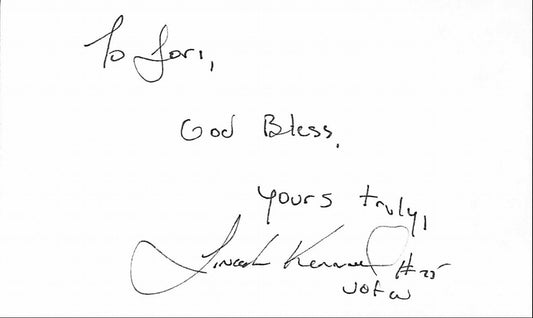 To Lori,
God Bless.
Yours truly,
Lincoln Kennedy #75
U of W